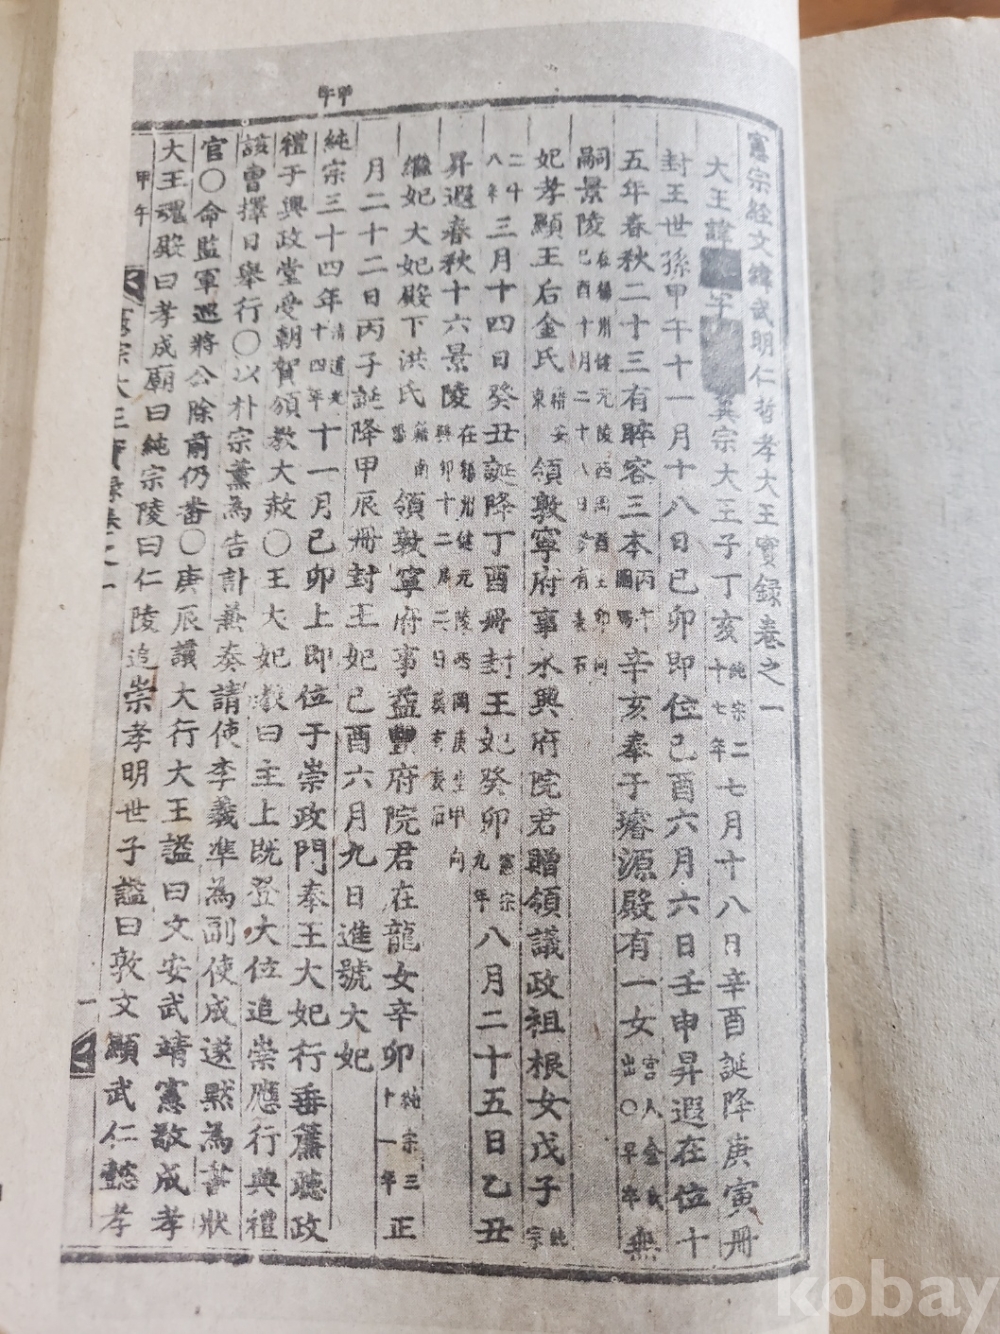 甲午
憲宗経文緯武明仁哲孝大王實録巻之一
大王諱 字 翼宗大王子丁亥純宗二十七年七月十八日辛酉誕降庚寅冊
封王世孫甲午十一月十八日己卯即位己酉六月六日壬申昇遐在位十
五年春秋二十三有睟容三本丙午圖寫辛亥奉于璿源殿有一女宮人金氏出○早卒無
嗣景陵在楊州健元陵西岡酉坐卯向己酉十月二十八日葬有表石
妃孝顯王后金氏籍安東領敦寧府事永興府院君贈領議政祖根女戊子純宗
二十八年三月十四日癸丑誕降丁酉冊封王妃癸卯憲宗九年八月二十五日乙丑
昇遐春秋十六景陵在楊州健元陵西岡庚坐甲向癸卯十二月二日葬有表石
繼妃大妃殿下洪氏籍南陽領敦寧府事益豐府院君在龍女辛卯純宗三十一年正
月二十二日丙子誕降甲辰冊封王妃己酉六月九日進號大妃
純宗三十四年清道光十四年十一月己卯上即位于崇政門奉王大妃行垂簾聽政
禮于興政堂受朝賀頒教大赦○王大妃教曰主上既登大位追崇應行典禮
該曹擇日舉行○以朴宗薰為告訃兼奏請使李羲準為副使成遂默為書狀
官○命監軍巡將公除前仍番○庚辰議大行大王謚曰文安武靖憲敬成孝
大王魂殿曰孝成廟曰純宗陵曰仁陵追崇孝明世子謚曰敦文顯武仁懿孝
甲午
憲宗大王實録巻之一
一
kobay